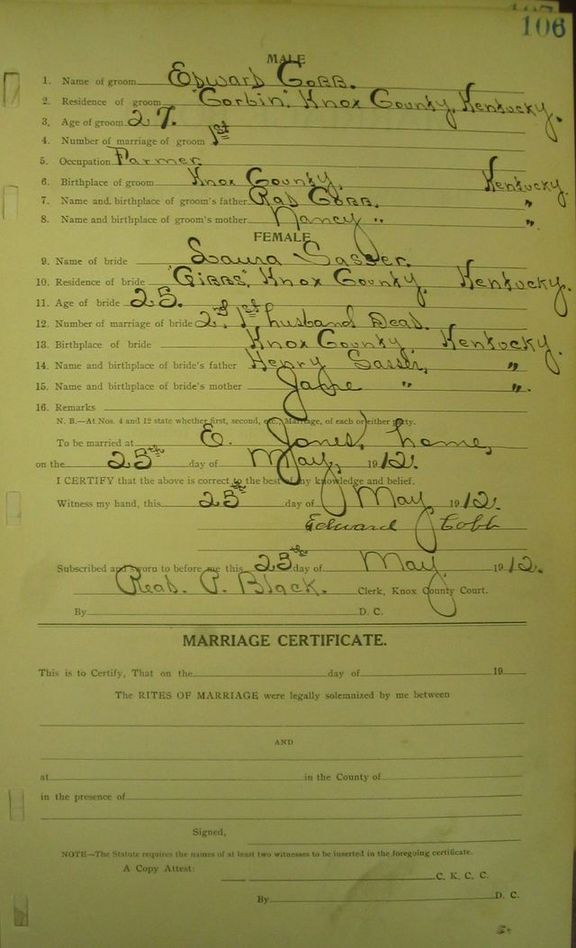 106
MALE
1. Name of groom Edward Cobb.
2. Residence of groom "Corbin", Knox County, Kentucky.
3. Age of groom 27.
4. Number of marriage of groom 1st
5. Occupation Farmer.
6. Birthplace of groom Knox County, Kentucky.
7. Name and birthplace of groom's father Rob Cobb. "
8. Name and birthplace of groom's mother Nancy " "
FEMALE
9. Name of bride Laura Sasser.
10. Residence of bride "Gibbs", Knox County, Kentucky.
11. Age of bride 25.
12. Number of marriage of bride 2d, 1st husband Dead.
13. Birthplace of bride Knox County, Kentucky.
14. Name and birthplace of bride's father Henry Sasser, "
15. Name and birthplace of bride's mother Jane " ".
16. Remarks
N. B.—At Nos. 4 and 12 state whether first, second, etc., Marriage, of each or either party.
To be married at E. Jones, home,
on the 25th day of May, 1912.
I CERTIFY that the above is correct to the best of my knowledge and belief.
Witness my hand, this 25th day of May 1912.
Edward Cobb
Subscribed and sworn to before me this 25th day of May, 1912.
Read P. Black. Clerk, Knox County Court.
By D. C.
MARRIAGE CERTIFICATE.
This is to Certify, That on the day of 19
The RITES OF MARRIAGE were legally solemnized by me between
AND
at in the County of
in the presence of
Signed,
NOTE—The Statute requires the names of at least two witnesses to be inserted in the foregoing certificate.
A Copy Attest: C. K. C. C.
By D. C.